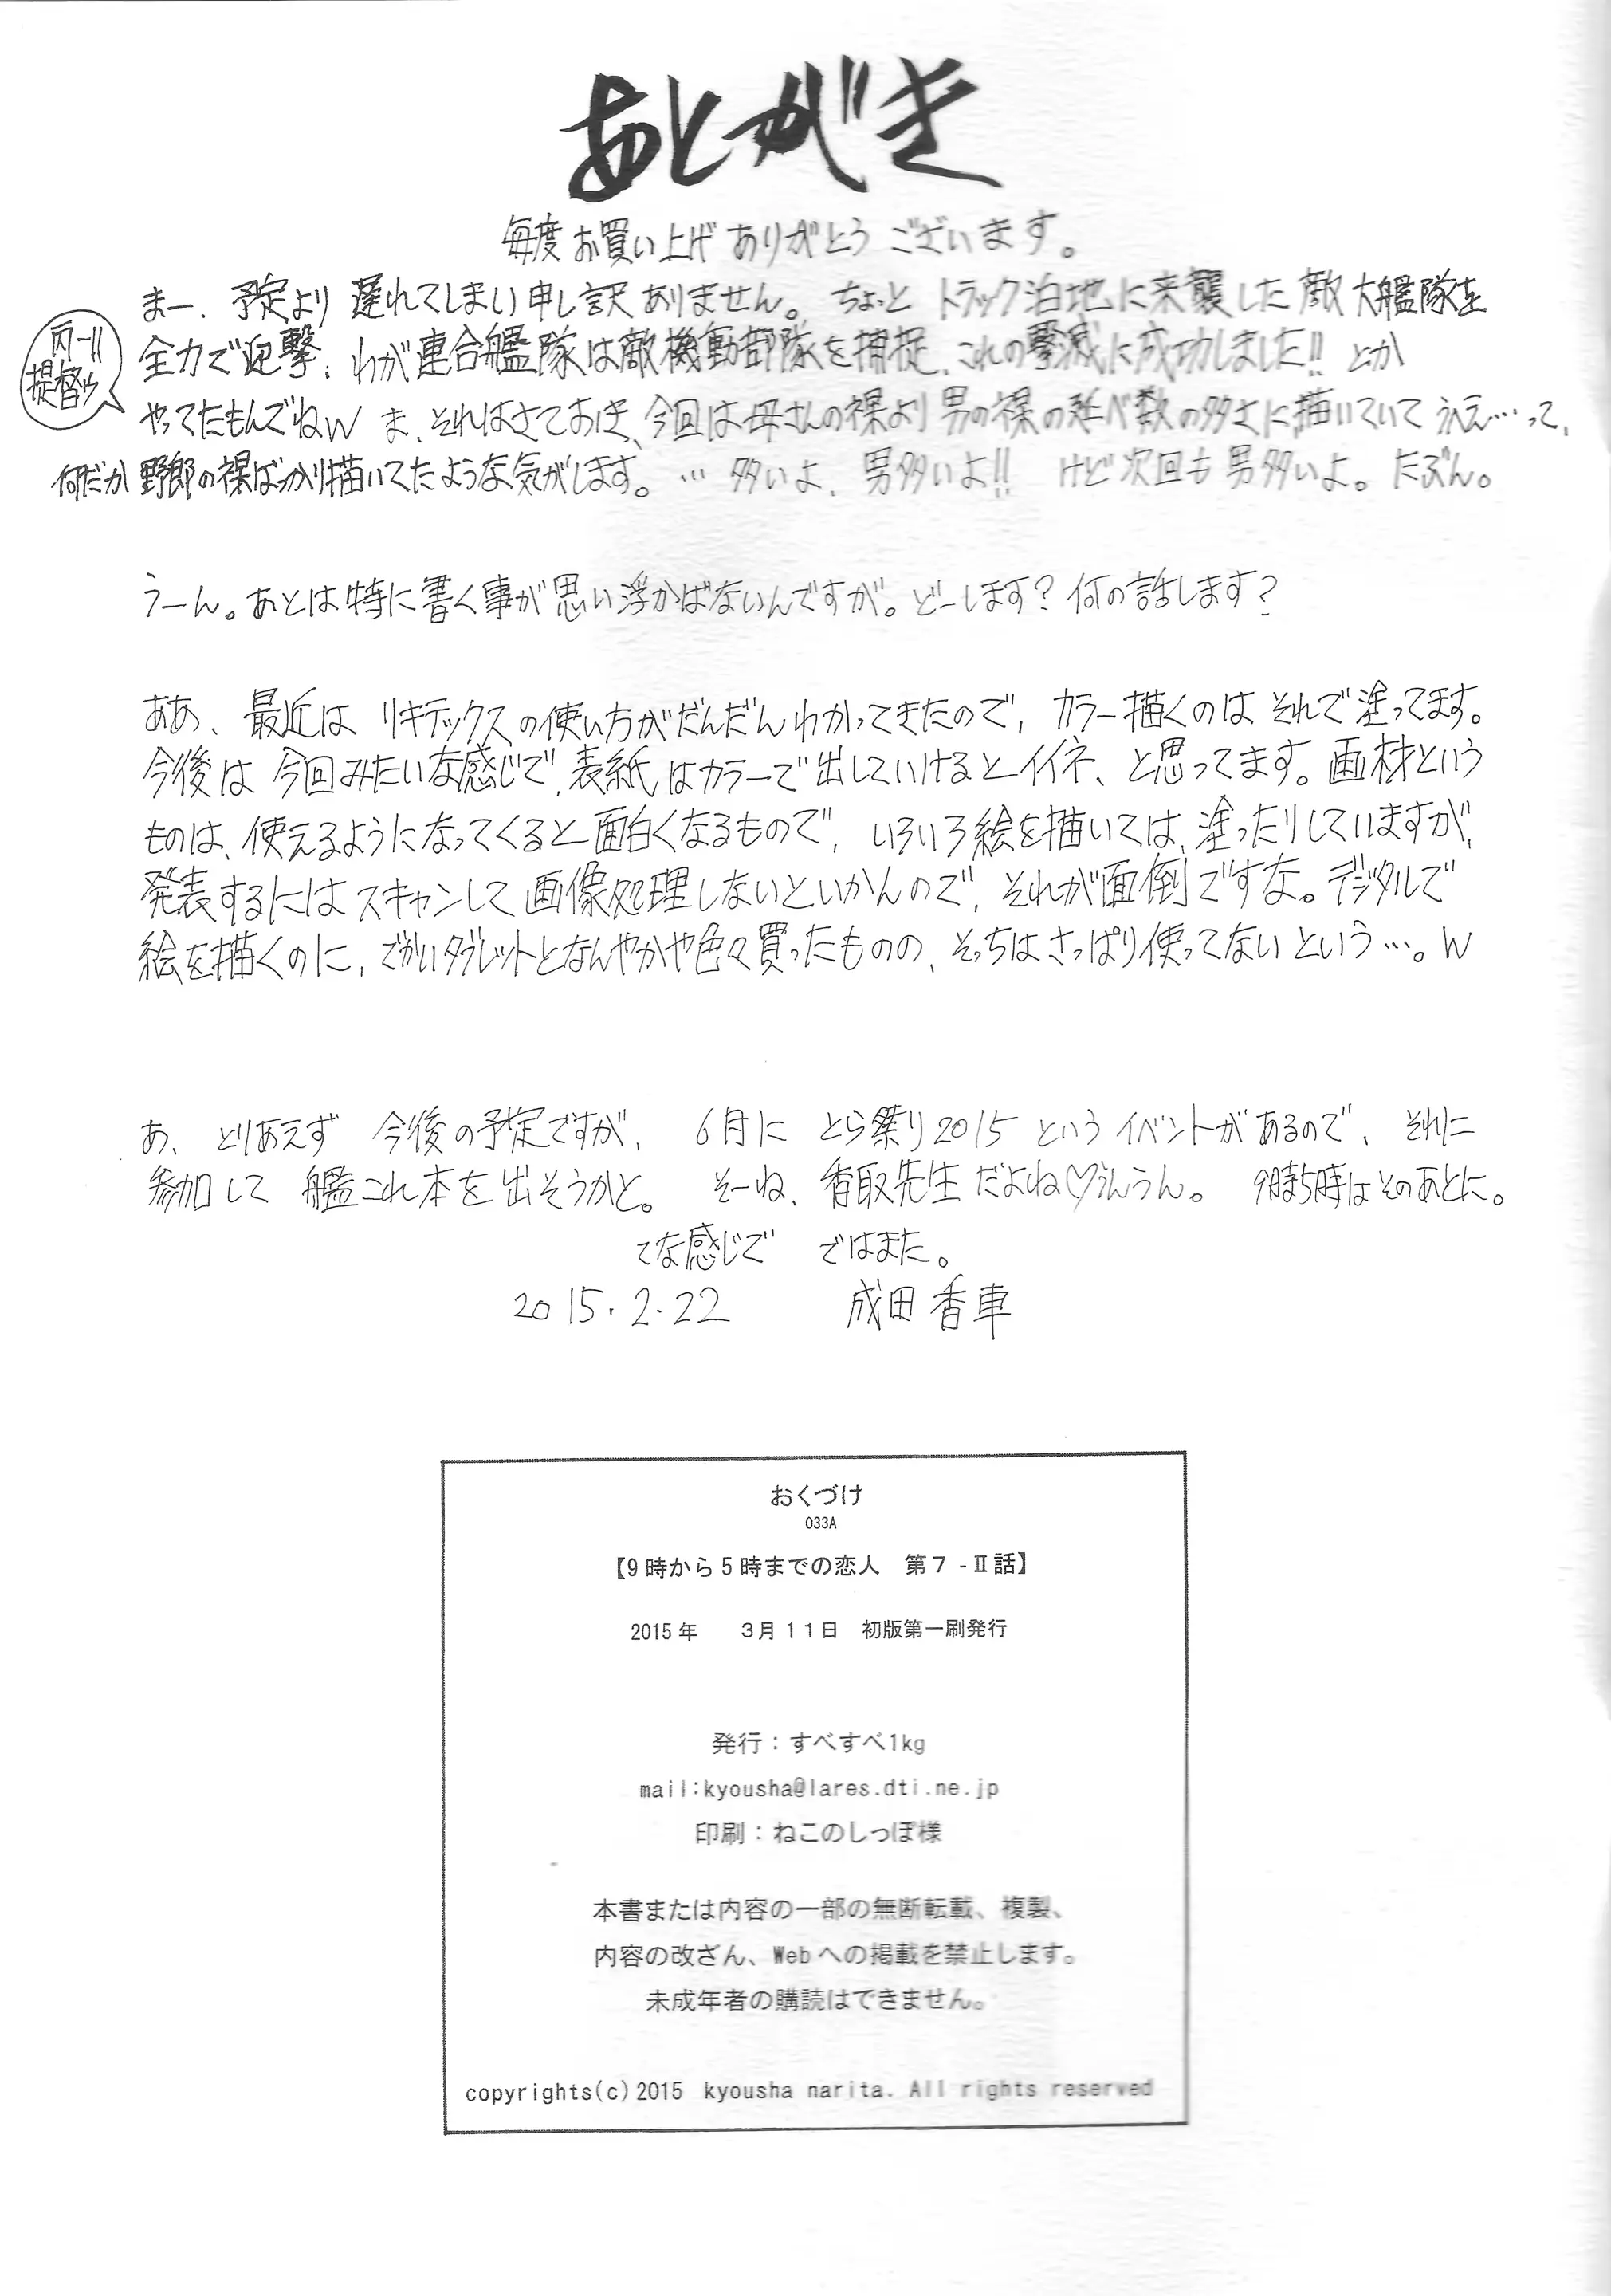 あとがき
毎度お買い上げありがとうございます。
まー、予定より遅れてしまい申し訳ありません。ちょっとトラック泊地に来襲した敵大艦隊を
全力で迎撃、わが連合艦隊は敵機動部隊を捕捉、これの撃滅に成功しました!!とか
提督ッ
やってたもんでねw ま、それはさておき、今回は母さんの裸より男の裸の延べ数の多さに、描いていてうええ…って、
何だか野郎の裸ばっかり描いてたような気がします。…多いよ、男多いよ!! けど次回も男多いよ。たぶん。
うーん。あとは特に書く事が思い浮かばないんですが。どーします?何の話します?
ああ、最近はリキテックスの使い方がだんだんわかってきたので、カラー描くのはそれで塗ってます。
今後は今回みたいな感じで、表紙はカラーで出していけるとイイネ、と思ってます。画材という
ものは、使えるようになってくると面白くなるもので、いろいろ絵を描いては、塗ったりしていますが、
発表するにはスキャンして画像処理しないといかんので、それが面倒ですな。デジタルで
絵を描くのに、でかいタブレットとなんやかや色々買ったものの、そっちはさっぱり使ってないという…。w
あ、とりあえず今後の予定ですが、6月にとら祭り2015というイベントがあるので、それに
参加して艦これ本を出そうかと。そーね、香取先生だよね♡うんうん。9時5時はそのあとに。
てな感じで ではまた。
2015.2.22 成田香車
おくづけ
033A
【9時から5時までの恋人 第7-Ⅱ話】
2015年 3月11日 初版第一刷発行
発行：すべすべ1kg
mail:kyousha@lares.dti.ne.jp
印刷：ねこのしっぽ様
本書または内容の一部の無断転載、複製、
内容の改ざん、Webへの掲載を禁止します。
未成年者の購読はできません。
copyrights(c)2015 kyousha narita. All rights reserved